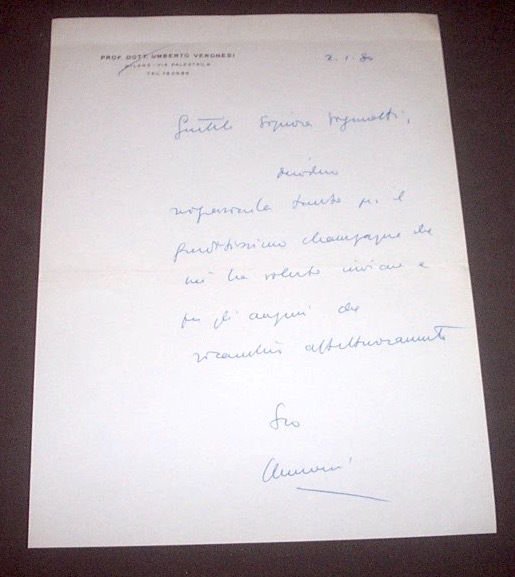 PROF. DOTT. UMBERTO VERONESI
MILANO - VIA PALESTRO
TEL.
2.1.80
Gentile Signora
desidero
ringraziarla tanto per il
graditissimo champagne che
mi ha voluto inviare e
per gli auguri che
ricambio affettuosamente
Suo